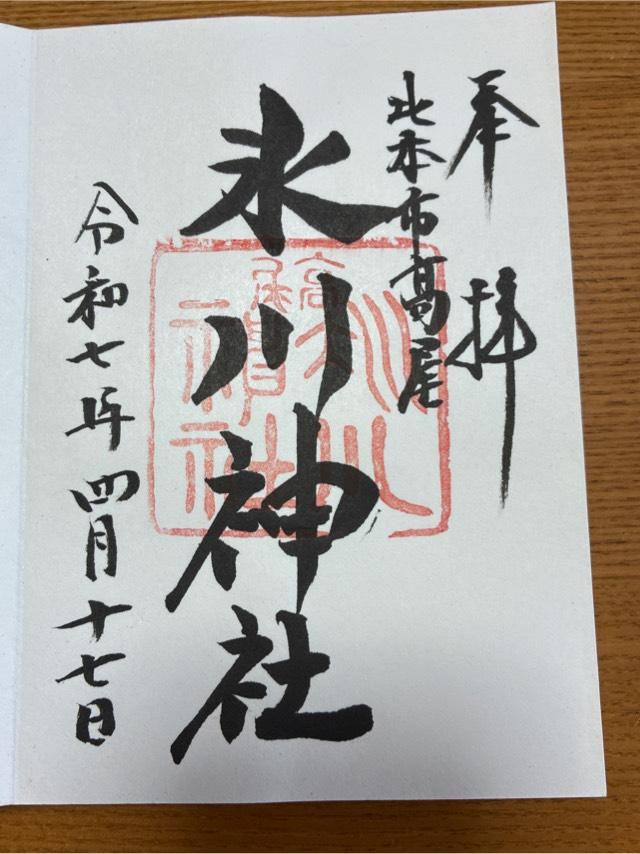 奉拝
北本市高尾
氷川神社
令和七年四月十七日